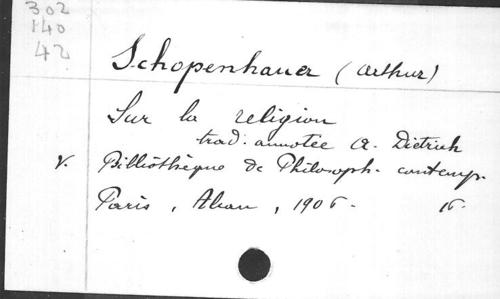 302
140
42
Schopenhauer (Arthur)
Sur la religion
trad. annotée A. Dietrich
v. Bibliothèque de Philosoph. contemp.
Paris, Alcan, 1906. 16.